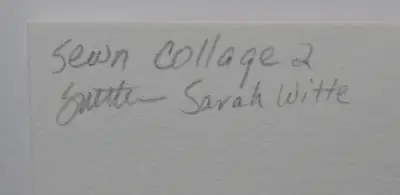 Sewn Collage 2
Sarah Witte